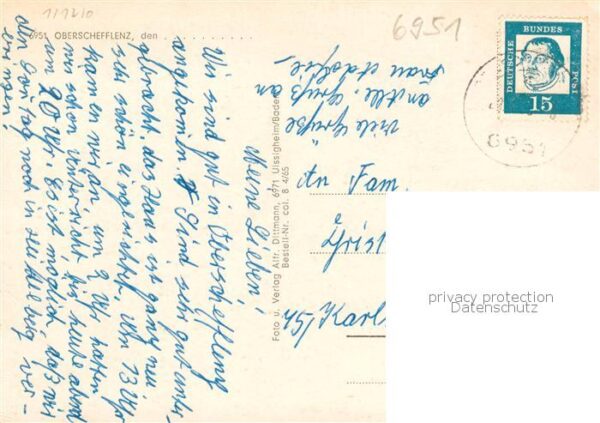 1/1210
6951
6951 OBERSCHEFFLENZ, den
DEUTSCHE BUNDESPOST
15
6951
Meine Lieben!
Wir sind gut in Oberschefflenz
angekommen. Sind sehr gut unter-
gebracht das Haus ist ganz neu
sehr schön eingerichtet. Um 13 Uhr
kamen wir an um 2 Uhr hatten
wir schon Unterricht bis heute abend
um 20 Uhr. Es ist möglich daß wir
den Sonntag noch in
bringen.
Viele Grüße
Gruß an
Frau
Foto u. Verlag Alfr. Dittmann, 6971 Uissigheim/Baden
Bestell-Nr. col. B 4/65
An Fam.
Grist
75/Karls
privacy protection
Datenschutz